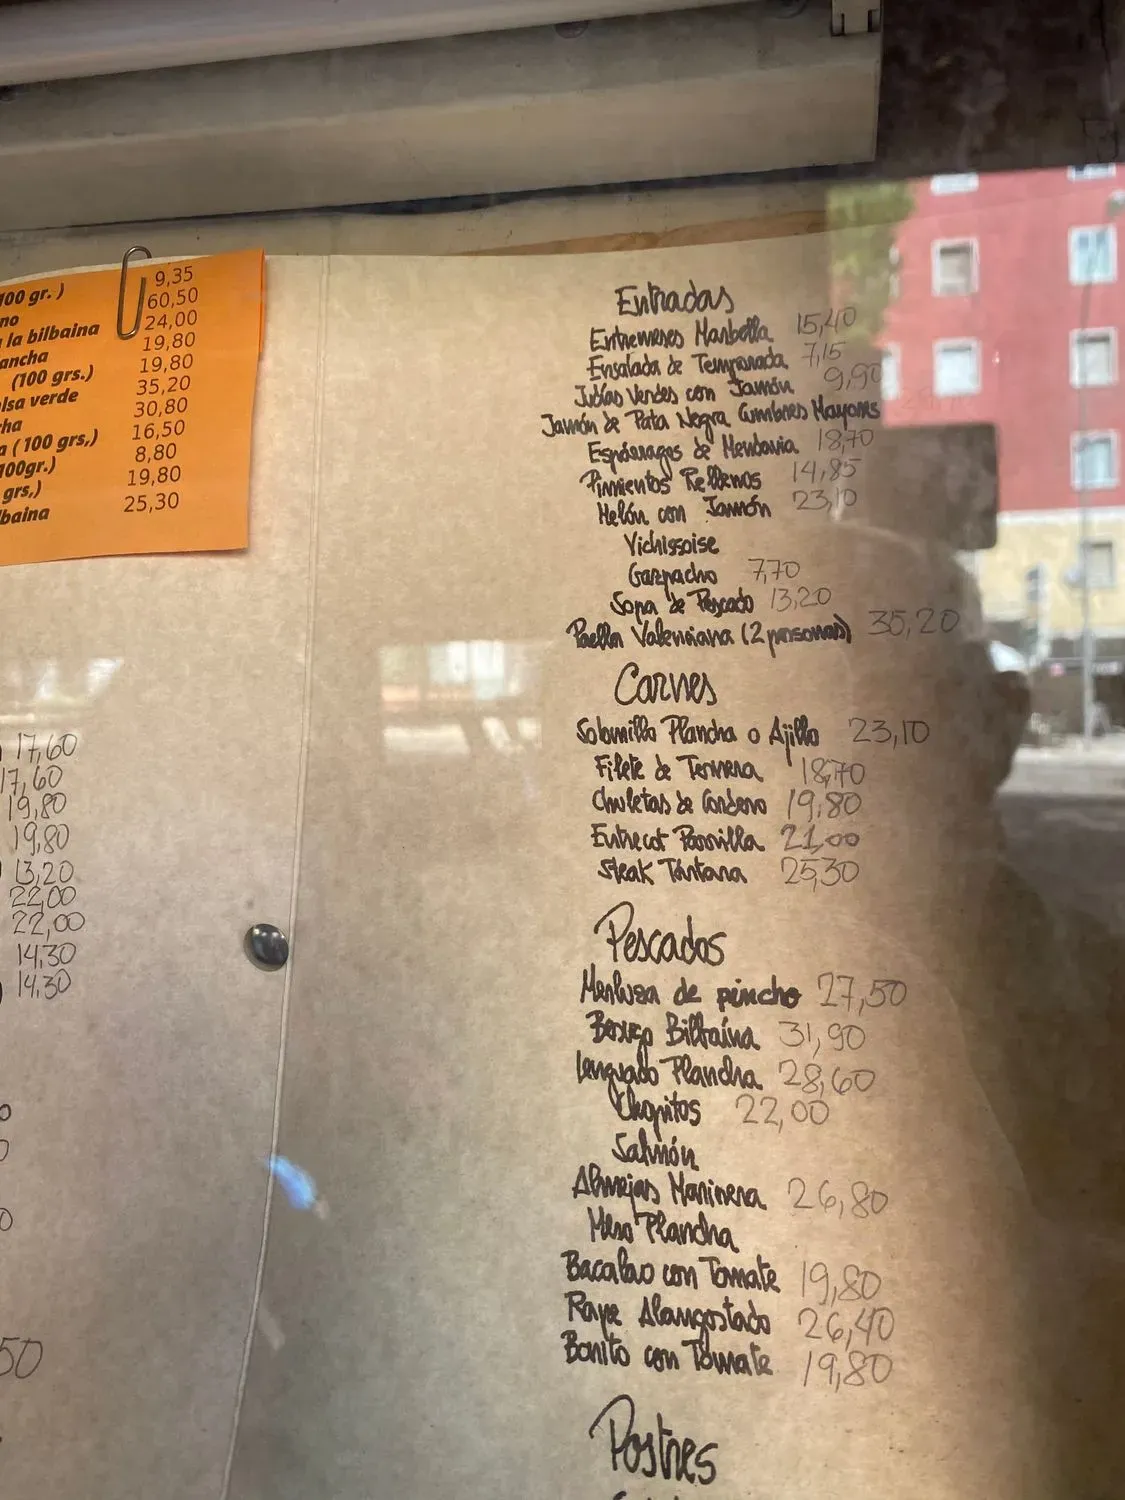 100 gr. ) 9,35
no 60,50
la bilbaina 24,00
ancha 19,80
(100 grs.) 19,80
lsa verde 35,20
cha 30,80
a ( 100 grs,) 16,50
100gr.) 8,80
grs,) 19,80
lbaina 25,30
17,60
17,60
19,80
19,80
13,20
22,00
22,00
14,30
14,30
50
Entradas
Entremeses Marbella 15,40
Ensalada de Temporada 7,15
Judías Verdes con Jamón 9,90
Jamón de Pata Negra Cumbres Mayores
Espárragos de Mendavia 18,70
Pimientos Rellenos 14,85
Melón con Jamón 23,10
Vichissoise
Gazpacho 7,70
Sopa de Pescado 13,20
Paella Valenciana (2 personas) 35,20
Carnes
Solomillo Plancha o Ajillo 23,10
Filete de Ternera 18,70
Chuletas de Cordero 19,80
Entrecot Parrilla 21,00
Steak Tártara 25,30
Pescados
Merluza de pincho 27,50
Besugo Bilbaína 31,90
Lenguado Plancha 28,60
Chopitos 22,00
Salmón
Almejas Marinera 26,80
Mero Plancha
Bacalao con Tomate 19,80
Rape Alangostado 26,40
Bonito con Tomate 19,80
Postres